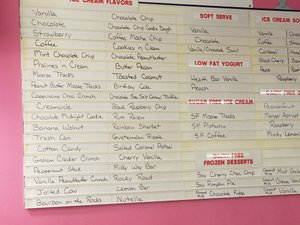 ICE CREAM FLAVORS
Vanilla
Chocolate
Strawberry
Coffee
Mint Chocolate Chip
Pralines n Cream
Moose Tracks
Peanut Butter Moose Tracks
Cappuccino Choc Crunch
Creamsicle
Chocolate Midnight Cookie
Banana Walnut
Trash Can
Cotton Candy
Graham Cracker Crunch
Peppermint Stick
Vanilla Peanutbutter Crunch
Jolted Cow
Bourbon on the Rocks
Chocolate Chip
Chocolate Chip Cookie Dough
Coffee Mocha Chip
Cookies n Cream
Chocolate Peanutbutter
Butter Pecan
Toasted Coconut
Birthday Cake
Chocolate Sea Salt Caramel Truffle
Black Raspberry Chip
Rum Raisin
Rainbow Sherbet
Guatemalan Ripple
Salted Caramel Pretzel
Cherry Vanilla
Milky Way Bar
Rocky Road
Lemon Bar
Nutella
SOFT SERVE
Vanilla
Chocolate
Vanilla/Chocolate Swirl
LOW FAT YOGURT
Heath Bar Vanilla
Peach
SUGAR FREE ICE CREAM
SF Moose Tracks
SF Pistachio
SF Coffee
DAIRY FREE
FROZEN DESSERTS
Soy Cherry Choc Chip
Soy Pumpkin Pie
Chocolate Fudge
ICE CREAM
Vanilla
Coffee
Black
Raspberry
Minty
Lemon